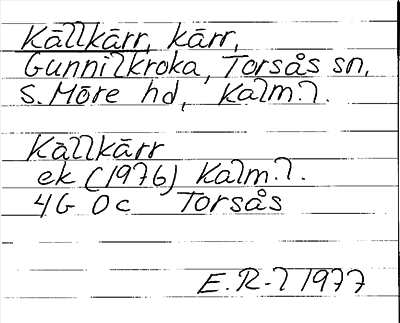 Källkärr, kärr,
Gunnilkroka, Torsås sn,
S. Möre hd, Kalm. l.
Källkärr
ek (1976) Kalm. l.
4G 0c Torsås
E. R-l 1977